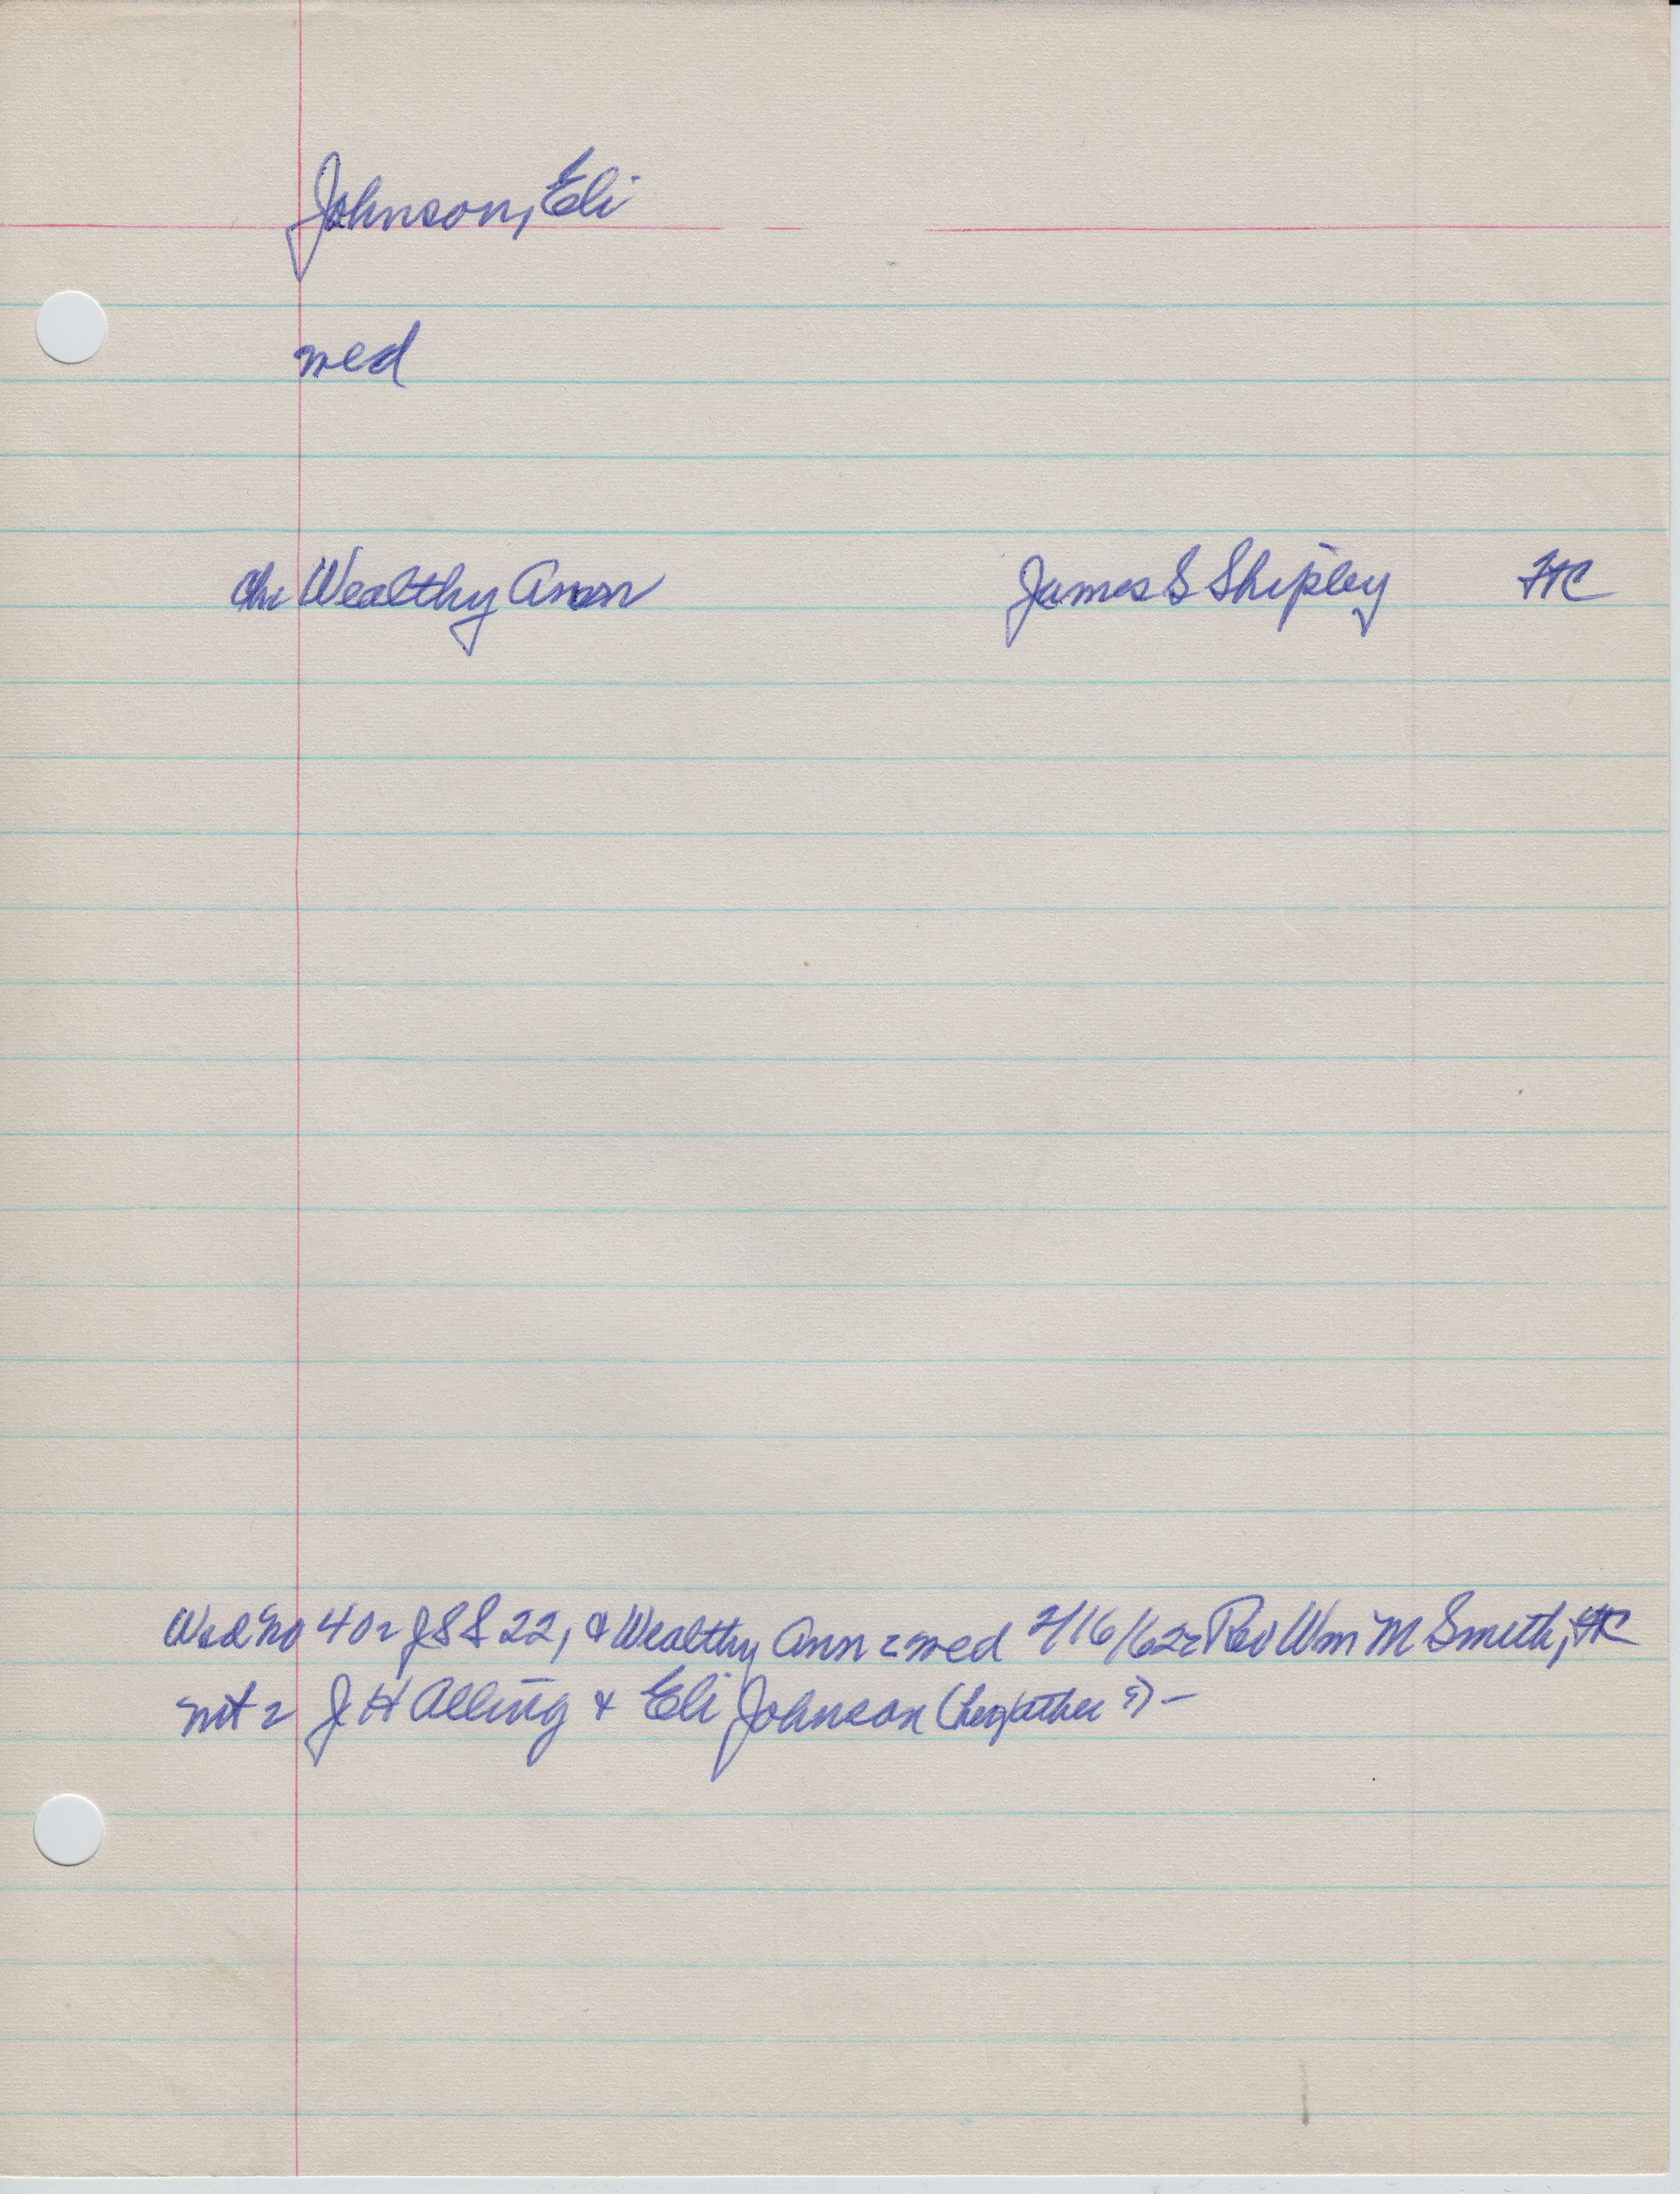 Johnson, Eli
wed
Chi Wealthy Ann James S Shipley
Wed No 40 = J S S 22, & Wealthy Ann = wed 2/16/62 = Rev Wm M Smith,
wit = J H Alling & Eli Johnson (her father ?) -